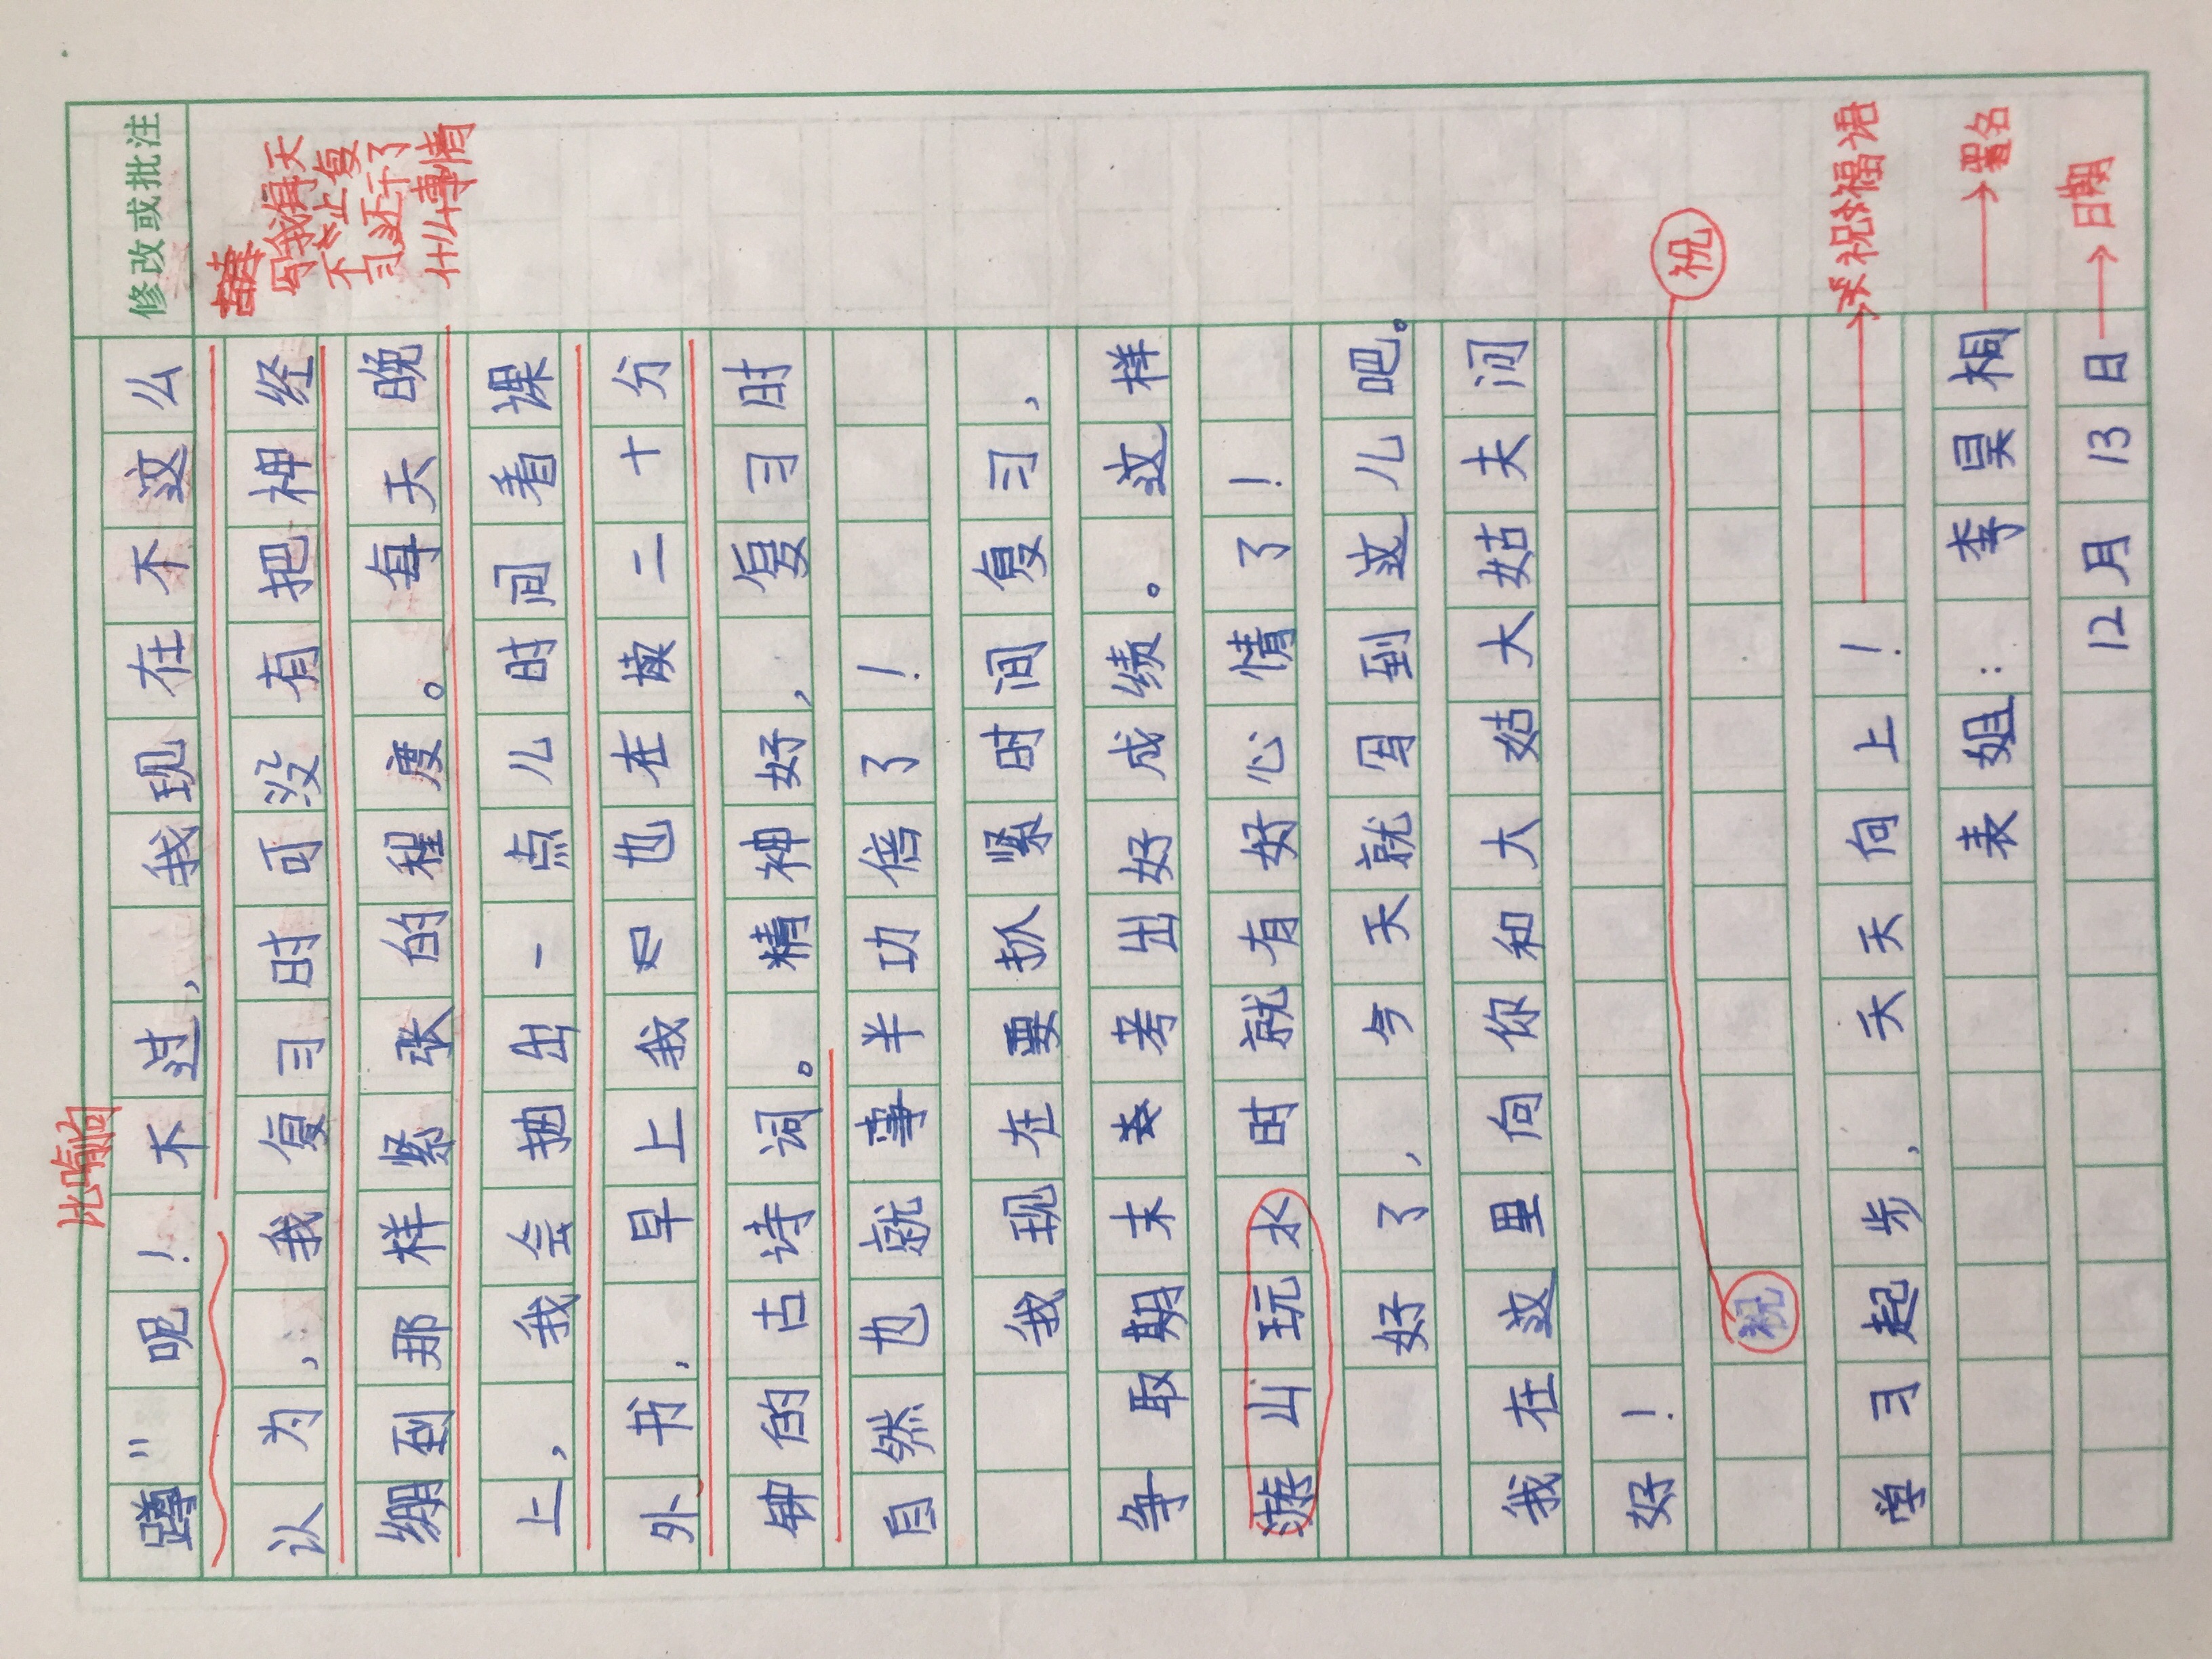 修改或批注
比喻句
蹲"呢！不过，我现在不这么
认为，我复习时可没有把神经
绷到那样紧张的程度。每天晚
上，我会抽出一点儿时间看课
外书，早上我也在读二十分
钟的古诗词。精神好，复习时
自然也就事半功倍了！
我现在要抓紧时间复习，
争取期末考出好成绩。这样
游山玩水时就有好心情了！
好了，今天就写到这儿吧。
我在这里向你和大姑大姑夫问
好！
祝
学习起步，天天向上！
表姐：李昊桐
12月13日
写我每天
不止复
习还干了
什么事情
祝
祝福语
署名
日期